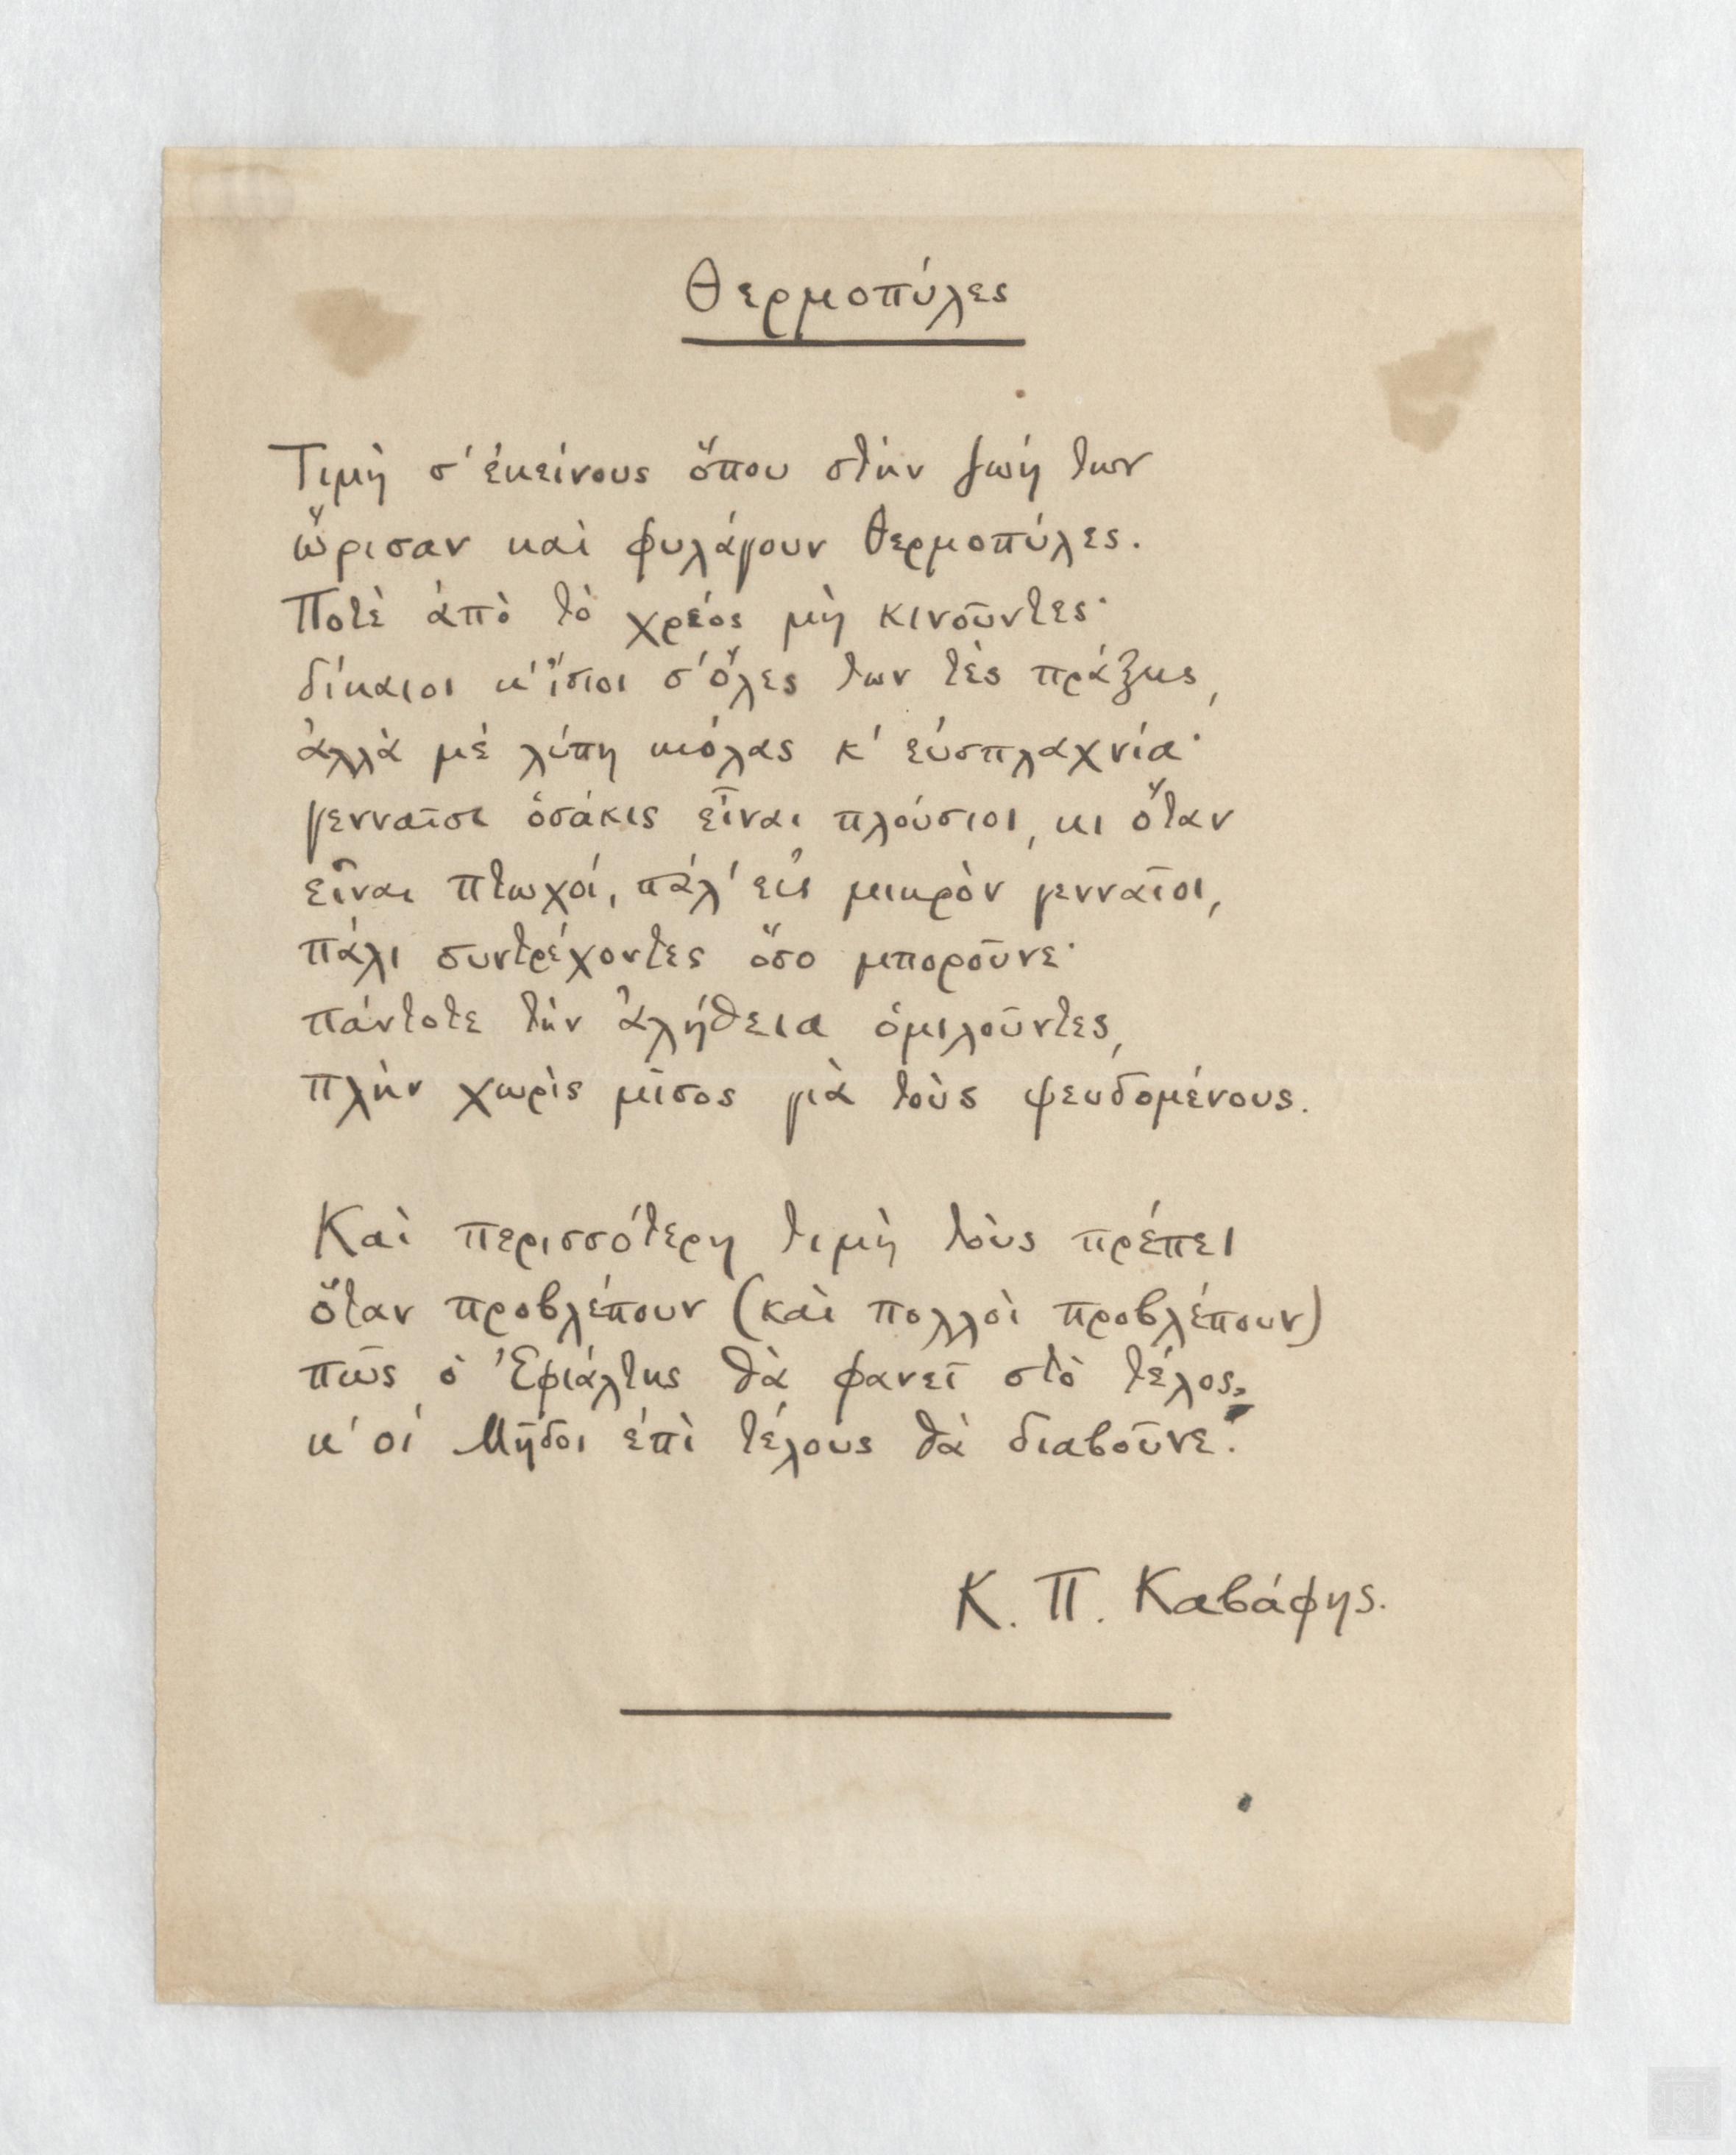 Θερμοπύλες
Τιμὴ σ' ἐκείνους ὅπου στὴν ζωή των
ὥρισαν καὶ φυλάγουν Θερμοπύλες.
Ποτὲ ἀπὸ τὸ χρέος μὴ κινοῦντες·
δίκαιοι κ' ἴσιοι σ' ὅλες των τὲς πράξεις,
ἀλλὰ μὲ λύπη κιόλας κ' εὐσπλαχνία·
γενναῖοι ὁσάκις εἶναι πλούσιοι, κι ὅταν
εἶναι πτωχοί, πάλ' εἰς μικρὸν γενναῖοι,
πάλι συντρέχοντες ὅσο μποροῦνε·
πάντοτε τὴν ἀλήθεια ὁμιλοῦντες,
πλὴν χωρὶς μῖσος γιὰ τοὺς ψευδομένους.
Καὶ περισσότερη τιμὴ τοὺς πρέπει
ὅταν προβλέπουν (καὶ πολλοὶ προβλέπουν)
πῶς ὁ Ἐφιάλτης θὰ φανεῖ στὸ τέλος,
κ' οἱ Μῆδοι ἐπὶ τέλους θὰ διαβοῦνε.
Κ. Π. Καβάφης.